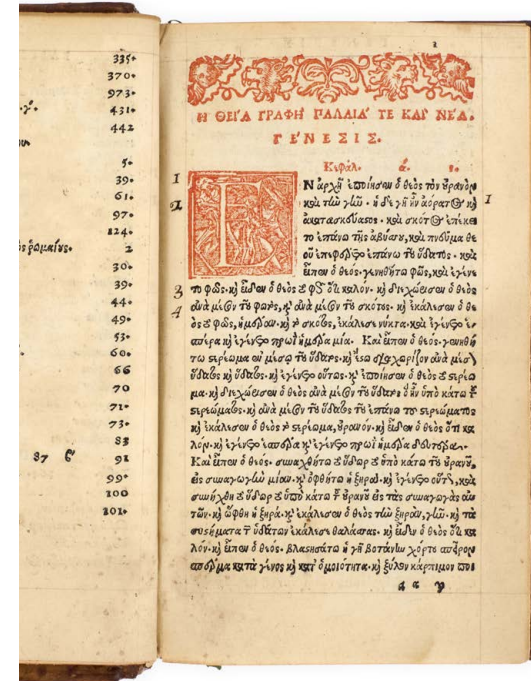 335.
370.
973.
431.
442
5.
39.
61.
97.
124.
2
30.
39.
44.
49.
53.
60.
66
70
71.
73.
83
87 6 91
99.
100
101.
1
Η ΘΕΙ'Α ΓΡΑΦΗ' ΠΑΛΑΙΑ' ΤΕ ΚΑΙ' ΝΕ'Α.
ΓΕ'ΝΕΣΙΣ.
Κεφάλ. ά. 1.
1 ΕΝ ἀρχῇ ἐποίησεν ὁ θεὸς τὸν οὐρανὸν 1
2 καὶ τὴν γῆν. ἡ δὲ γῆ ἦν ἀόρατος καὶ
ἀκατασκεύασος. καὶ σκότος ἐπέκει
το ἐπάνω τῆς ἀβύσσου, καὶ πνεῦμα θε
οῦ ἐπεφέρετο ἐπάνω τοῦ ὕδατος. καὶ
εἶπεν ὁ θεός. γενηθήτω φῶς, καὶ ἐγένε
3 το φῶς. καὶ εἶδεν ὁ θεὸς τὸ φῶς ὅτι καλόν. καὶ διεχώρισεν ὁ θεὸς
4 ἀνὰ μέσον τοῦ φωτὸς, καὶ ἀνὰ μέσον τοῦ σκότους. καὶ ἐκάλεσεν ὁ θε
ὸς τὸ φῶς, ἡμέραν. καὶ τὸ σκότος, ἐκάλεσε νύκτα. καὶ ἐγένετο ἑ
σπέρα καὶ ἐγένετο πρωῒ ἡμέρα μία. Καὶ εἶπεν ὁ θεός. γενηθή
τω στερέωμα ἐν μέσῳ τοῦ ὕδατος. καὶ ἔστω διαχωρίζον ἀνὰ μέσον
ὕδατος καὶ ὕδατος. καὶ ἐγένετο οὕτως. καὶ ἐποίησεν ὁ θεὸς τὸ στερέω
μα. καὶ διεχώρισεν ὁ θεὸς ἀνὰ μέσον τοῦ ὕδατος ὃ ἦν ὑπὸ κάτω τοῦ
στερεώματος, καὶ ἀνὰ μέσον τοῦ ὕδατος τοῦ ἐπάνω τοῦ στερεώματος
καὶ ἐκάλεσεν ὁ θεὸς τὸ στερέωμα, οὐρανόν. καὶ εἶδεν ὁ θεὸς ὅτι κα
λόν. καὶ ἐγένετο ἑσπέρα καὶ ἐγένετο πρωῒ ἡμέρα δευτέρα.
Καὶ εἶπεν ὁ θεός. συναχθήτω τὸ ὕδωρ τὸ ὑπὸ κάτω τοῦ οὐρανοῦ,
εἰς συναγωγὴν μίαν. καὶ ὀφθήτω ἡ ξηρά. καὶ ἐγένετο οὕτως, καὶ
συνήχθη τὸ ὕδωρ τὸ ὑπὸ κάτω τοῦ οὐρανοῦ εἰς τὰς συναγωγὰς αὐ
τῶν. καὶ ὤφθη ἡ ξηρά. καὶ ἐκάλεσεν ὁ θεὸς τὴν ξηρὰν, γῆν. καὶ τὰ
συστήματα τῶν ὑδάτων ἐκάλεσε θαλάσσας. καὶ εἶδεν ὁ θεὸς ὅτι κα
λόν. καὶ εἶπεν ὁ θεός. βλαστησάτω ἡ γῆ βοτάνην χόρτου σπεῖρον
σπέρμα κατὰ γένος καὶ κατ' ὁμοιότητα. καὶ ξύλον κάρπιμον ποι
a a y